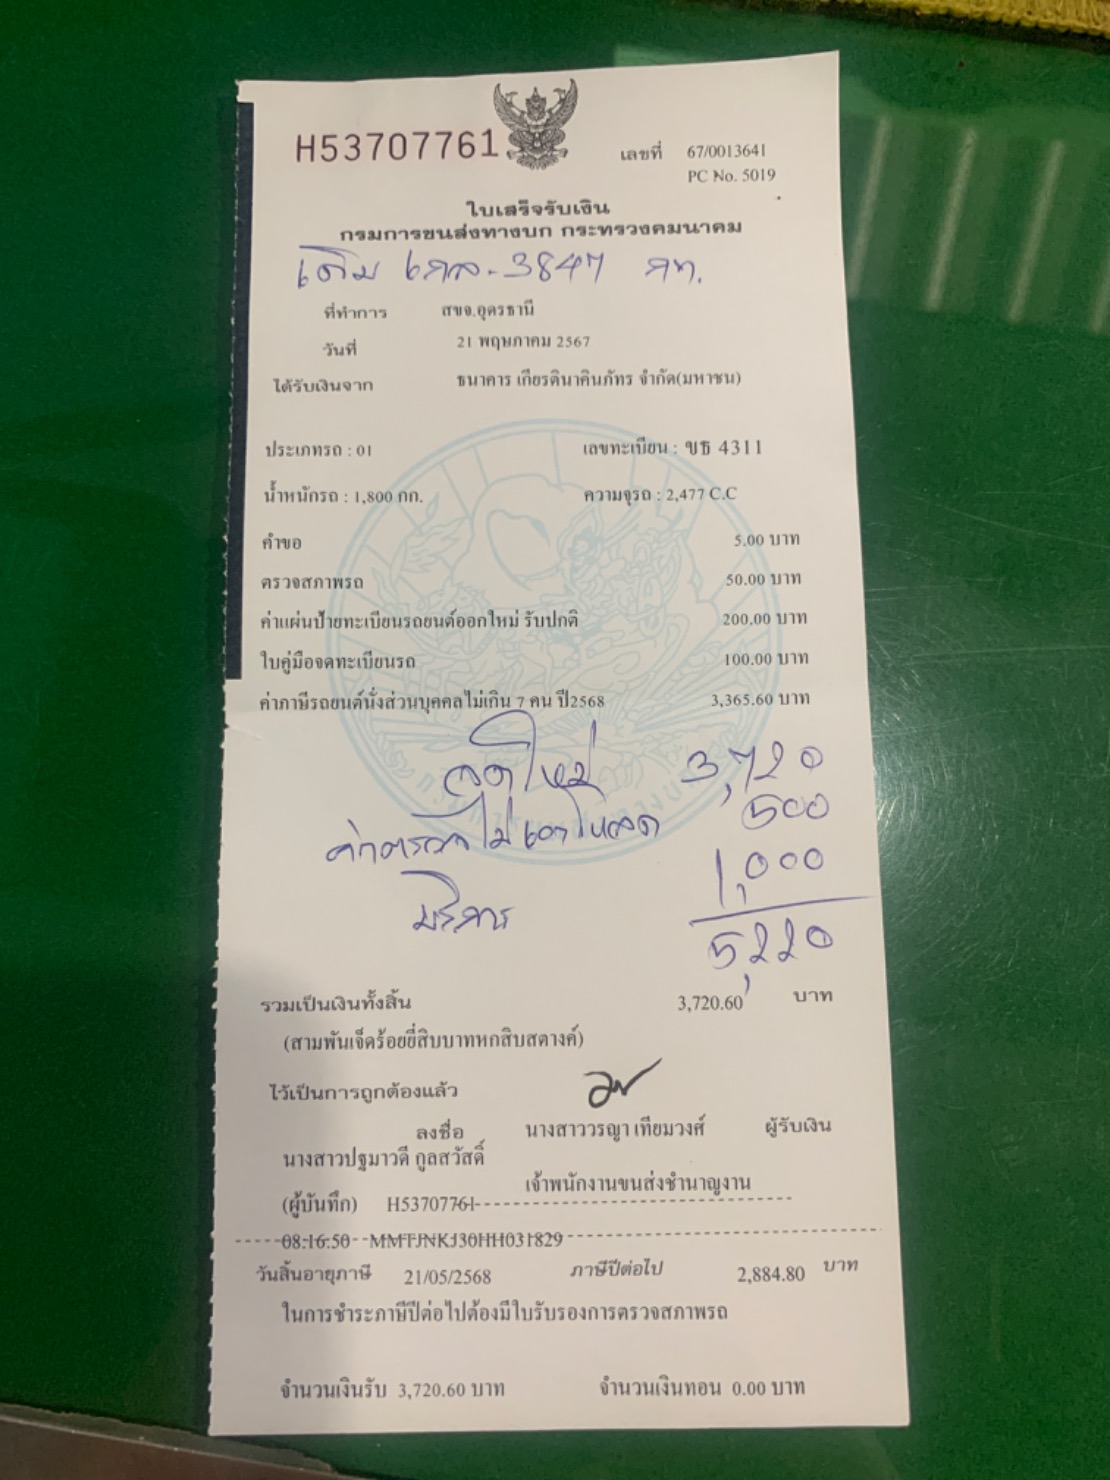 H53707761
เลขที่ 67/0013641
PC No. 5019
ใบเสร็จรับเงิน
กรมการขนส่งทางบก กระทรวงคมนาคม
เดิม 3847 กท.
ที่ทำการ สขจ.อุดรธานี
วันที่ 21 พฤษภาคม 2567
ได้รับเงินจาก ธนาคาร เกียรตินาคินภัทร จำกัด(มหาชน)
ประเภทรถ : 01 เลขทะเบียน : ขธ 4311
น้ำหนักรถ : 1,800 กก. ความจุรถ : 2,477 C.C
คำขอ 5.00 บาท
ตรวจสภาพรถ 50.00 บาท
ค่าแผ่นป้ายทะเบียนรถยนต์ออกใหม่ รับปกติ 200.00 บาท
ใบคู่มือจดทะเบียนรถ 100.00 บาท
ค่าภาษีรถยนต์นั่งส่วนบุคคลไม่เกิน 7 คน ปี2568 3,365.60 บาท
จดใหม่ 3,720
ค่าตรวจไม่เอาโหลด 500
บริการ 1,000
5,220
รวมเป็นเงินทั้งสิ้น 3,720.60 บาท
(สามพันเจ็ดร้อยยี่สิบบาทหกสิบสตางค์)
ไว้เป็นการถูกต้องแล้ว
ลงชื่อ นางสาววรญา เทียมวงศ์ ผู้รับเงิน
นางสาวปฐมาวดี กูลสวัสดิ์
เจ้าพนักงานขนส่งชำนาญงาน
(ผู้บันทึก) H53707761
08:16:50 MMTJNKJ30HH031829
วันสิ้นอายุภาษี 21/05/2568 ภาษีปีต่อไป 2,884.80 บาท
ในการชำระภาษีปีต่อไปต้องมีใบรับรองการตรวจสภาพรถ
จำนวนเงินรับ 3,720.60 บาท จำนวนเงินทอน 0.00 บาท